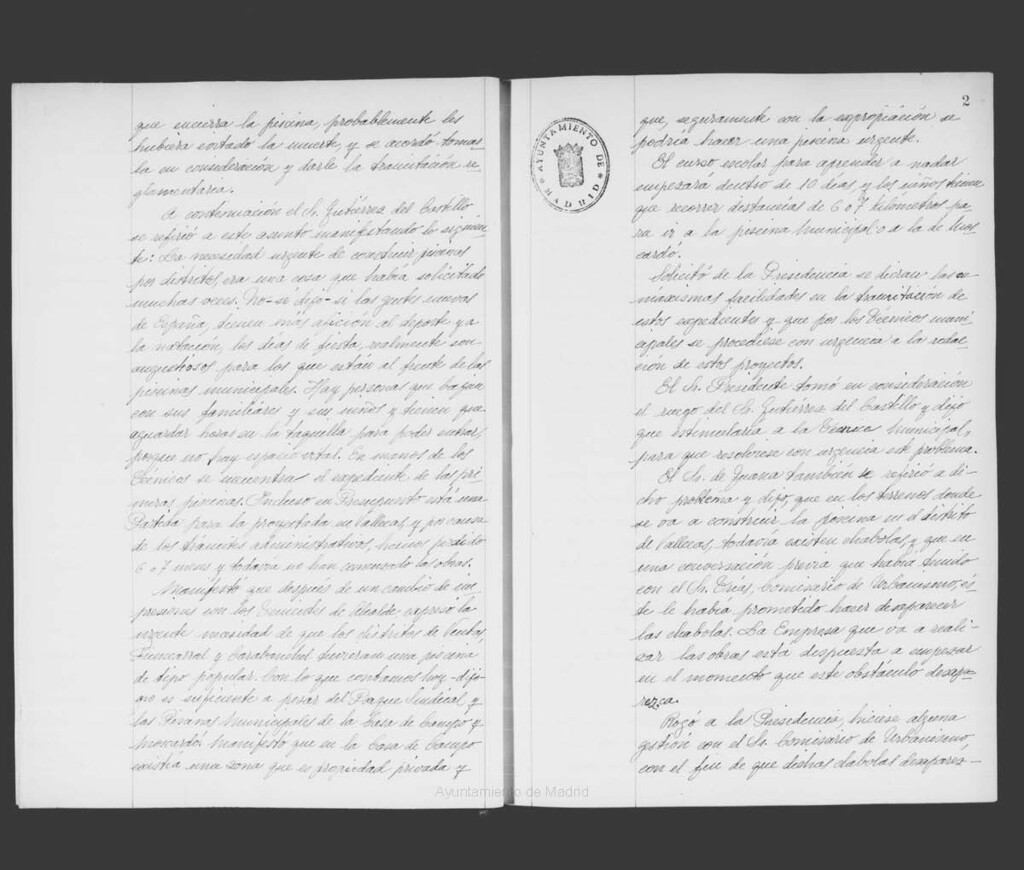 que encierra la piscina, probablemente les
hubiera costado la muerte, y se acordó tomar
la en consideración y darle la tramitación re
glamentaria.
A continuación el Sr. Gutiérrez del Castillo
se refirió a este asunto manifestando lo siguien
te: La necesidad urgente de construir piscinas
por distritos, era una cosa que había solicitado
muchas veces. No - se dijo - si las gentes nuevas
de España, tienen más afición al deporte y a
la natación, los días de fiesta, realmente son
angustiosos para los que están al frente de las
piscinas municipales. Hay personas que bajan
con sus familiares y sus niños y tienen que
aguardar horas en la taquilla para poder entrar,
porque no hay espacio vital. En manos de los
Técnicos se encuentra el expediente de las pri
meras piscinas. Incluso en Presupuesto está una
Partida para la proyectada en Vallecas, y por causa
de los trámites administrativos, hemos perdido
6 o 7 meses y todavía no han comenzado las obras.
Manifestó que después de un cambio de im
presiones con los Tenientes de Alcalde expresó la
urgente necesidad de que los distritos de Ventas,
Fuencarral y Carabanchel tuvieran una piscina
de tipo popular. Con lo que contamos hoy - dijo -
no es suficiente a pesar del Parque Sindical y
las Piscinas Municipales de la Casa de Campo y
Moscardó. Manifestó que en la Casa de Campo
existía una zona que es propiedad privada y
2
AYUNTAMIENTO DE MADRID
que, seguramente con la expropiación se
podría hacer una piscina urgente.
El curso escolar para aprender a nadar
empezará dentro de 10 días, y los niños tienen
que recorrer distancias de 6 o 7 kilómetros pa
ra ir a la piscina Municipal o a la de Mos
cardó.
Solicitó de la Presidencia se dieran las
maxismas facilidades en la tramitación de
estos expedientes y que por los Técnicos muni
cipales se procediese con urgencia a la redac
ción de estos proyectos.
El Sr. Presidente tomó en consideración
el ruego del Sr. Gutiérrez del Castillo y dijo
que estimularía a la Técnica Municipal,
para que resolviese con urgencia este problema.
El Sr. de Juana también se refirió a di
cho problema y dijo, que en los terrenos donde
se va a construir la piscina en el distrito
de Vallecas, todavía existen chabolas y que en
una conversación previa que había tenido
con el Sr. Comisario de Urbanismo, és
te le había prometido hacer desaparecer
las chabolas. La Empresa que va a reali-
zar las obras está dispuesta a empezar
en el momento que este obstáculo desapa-
rezca.
Rogó a la Presidencia, hiciese alguna
gestión con el Sr. Comisario de Urbanismo,
con el fin de que dichas chabolas desaparez-
Ayuntamiento de Madrid